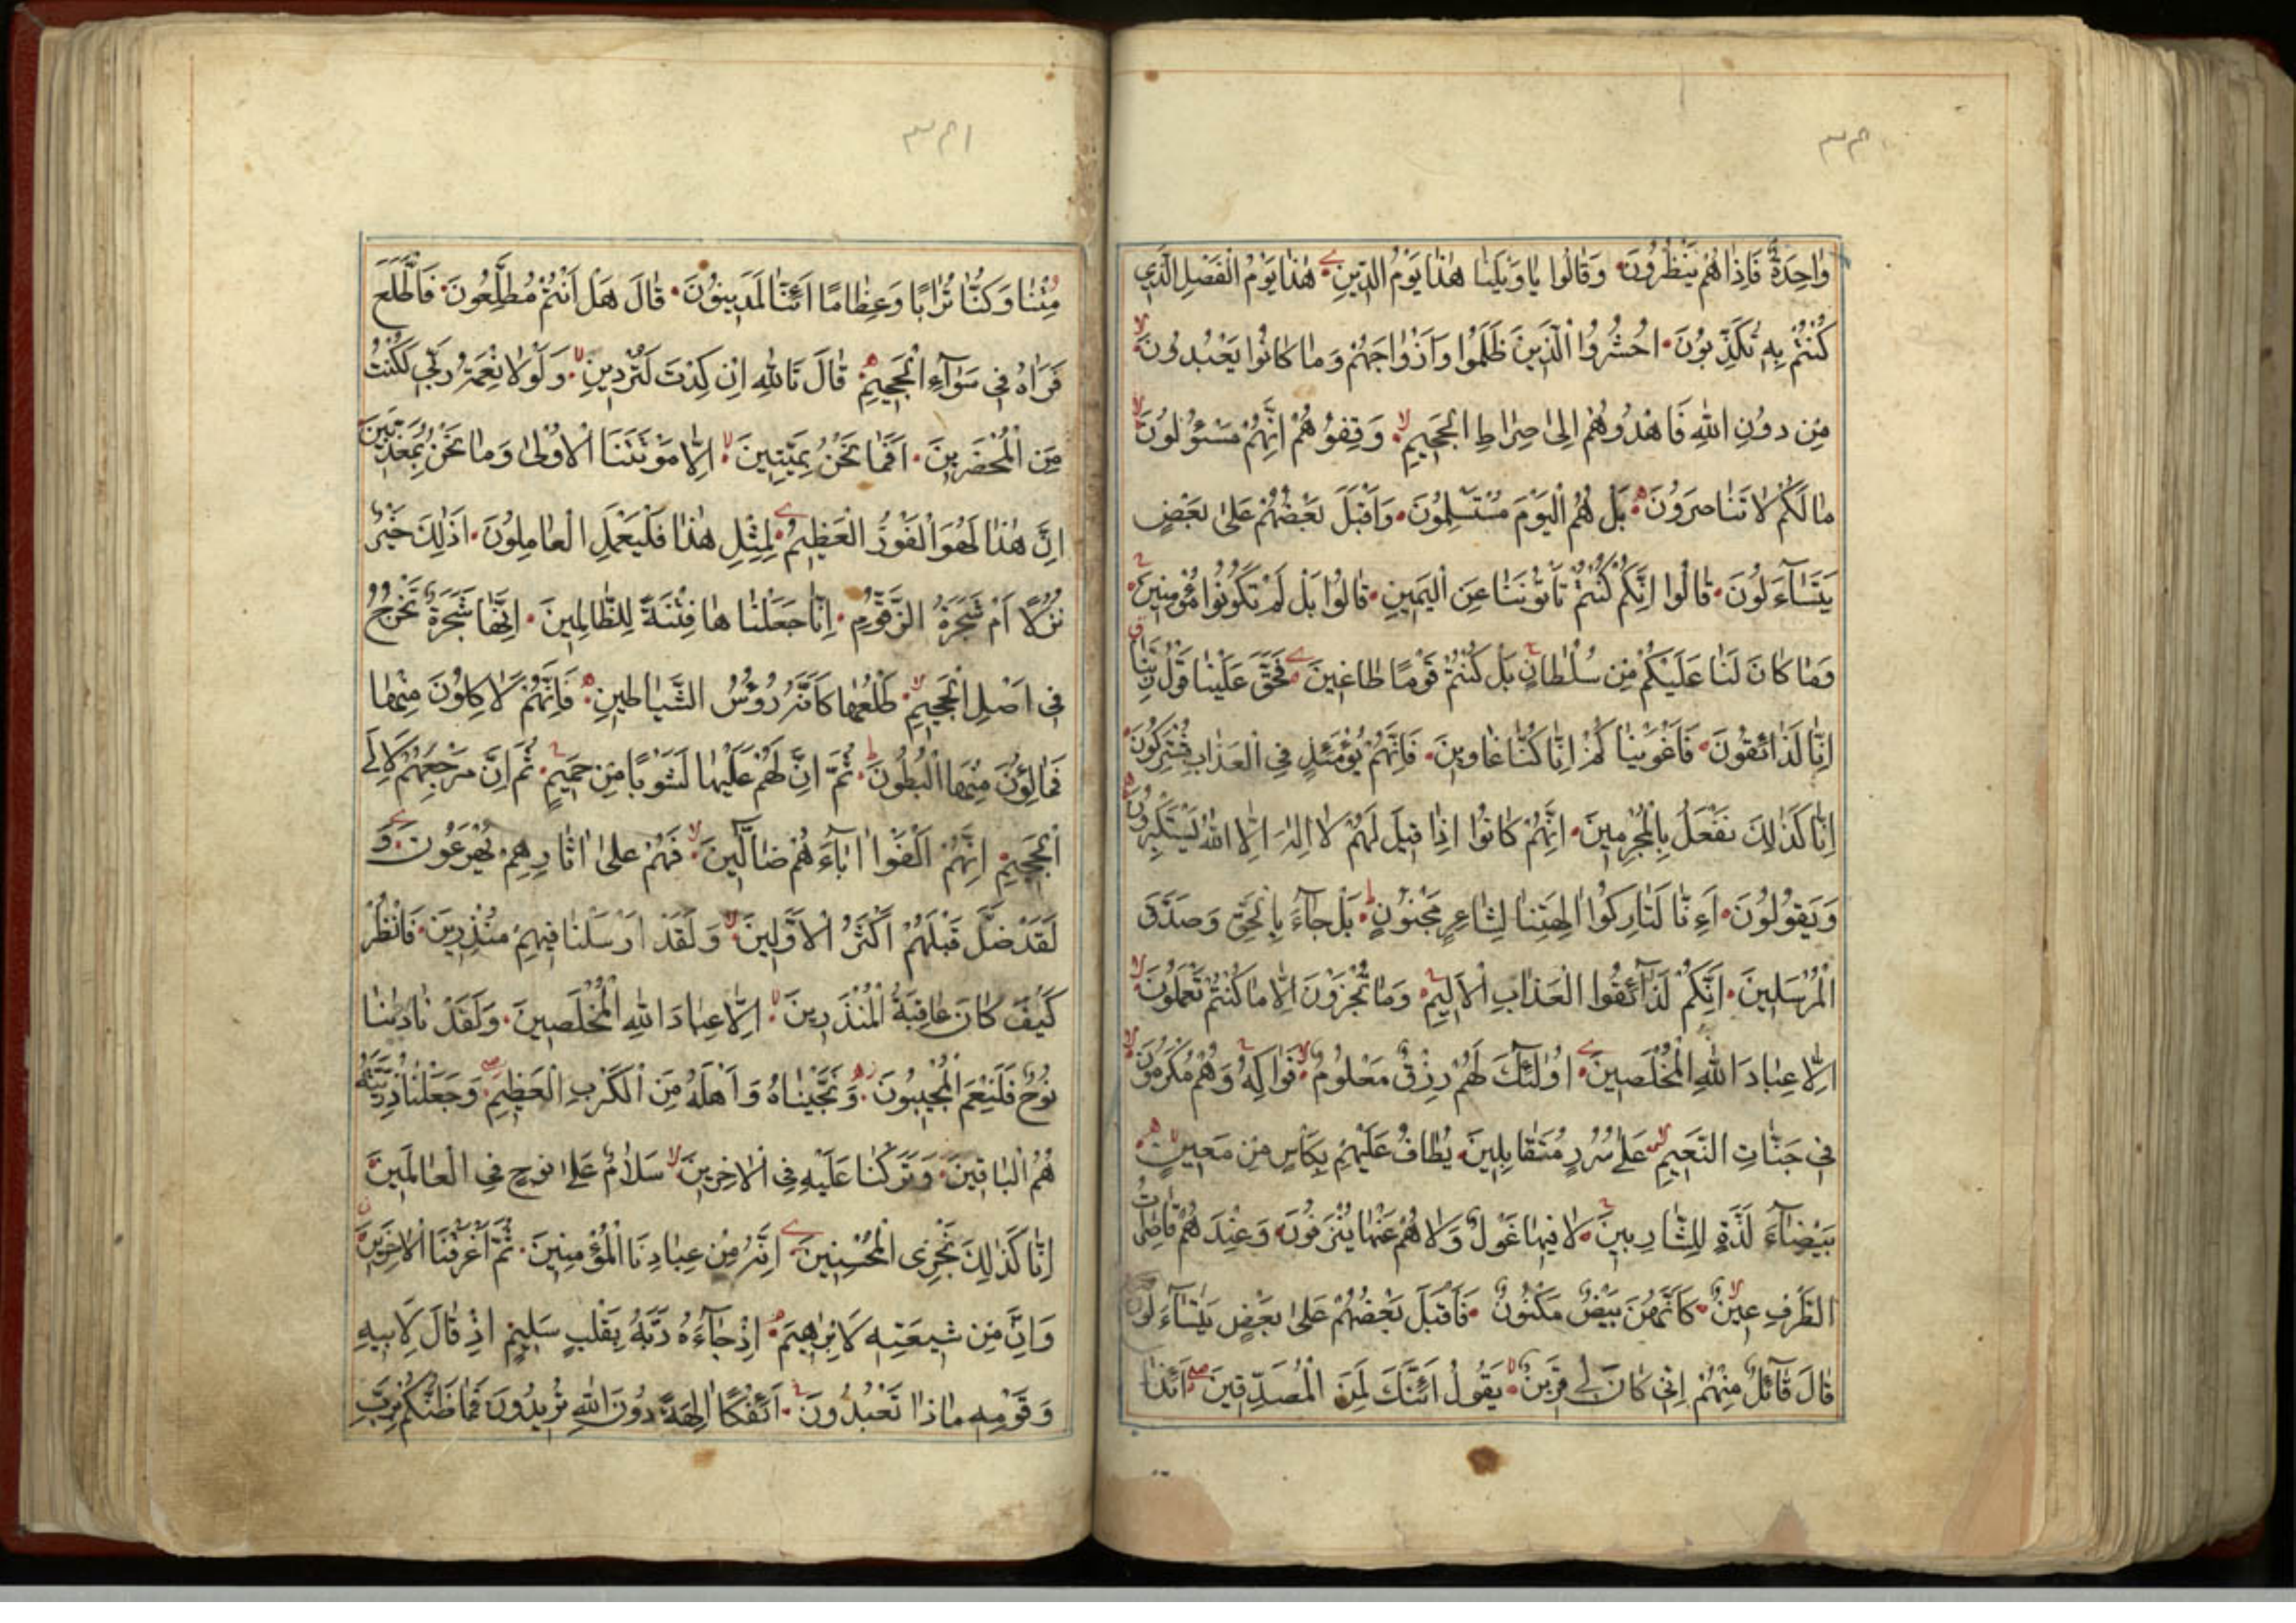 وَاحِدَةٌ فَاِذَا هُمْ يَنْظُرُونَ وَقَالُوا يَا وَيْلَنَا هٰذَا يَوْمُ الدِّينِ هٰذَا يَوْمُ الْفَصْلِ الَّذِي
كُنْتُمْ بِهِ تُكَذِّبُونَ اُحْشُرُوا الَّذِينَ ظَلَمُوا وَاَزْوَاجَهُمْ وَمَا كَانُوا يَعْبُدُونَ
مِنْ دُونِ اللهِ فَاهْدُوهُمْ اِلىٰ صِرَاطِ الْجَحِيمِ وَقِفُوهُمْ اِنَّهُمْ مَسْئُولُونَ
مَا لَكُمْ لَا تَنَاصَرُونَ بَلْ هُمُ الْيَوْمَ مُسْتَسْلِمُونَ وَاَقْبَلَ بَعْضُهُمْ عَلىٰ بَعْضٍ
يَتَسَآءَلُونَ قَالُوا اِنَّكُمْ كُنْتُمْ تَأْتُونَنَا عَنِ الْيَمِينِ قَالُوا بَلْ لَمْ تَكُونُوا مُؤْمِنِينَ
وَمَا كَانَ لَنَا عَلَيْكُمْ مِنْ سُلْطَانٍ بَلْ كُنْتُمْ قَوْمًا طَاغِينَ فَحَقَّ عَلَيْنَا قَوْلُ رَبِّنَا
اِنَّا لَذَائِقُونَ فَاَغْوَيْنَاكُمْ اِنَّا كُنَّا غَاوِينَ فَاِنَّهُمْ يَوْمَئِذٍ فِي الْعَذَابِ مُشْتَرِكُونَ
اِنَّا كَذٰلِكَ نَفْعَلُ بِالْمُجْرِمِينَ اِنَّهُمْ كَانُوا اِذَا قِيلَ لَهُمْ لَا اِلٰهَ اِلَّا اللهُ يَسْتَكْبِرُونَ
وَيَقُولُونَ اَءِنَّا لَتَارِكُوا اٰلِهَتِنَا لِشَاعِرٍ مَجْنُونٍ بَلْ جَآءَ بِالْحَقِّ وَصَدَّقَ
الْمُرْسَلِينَ اِنَّكُمْ لَذَآئِقُوا الْعَذَابِ الْاَلِيمِ وَمَا تُجْزَوْنَ اِلَّا مَا كُنْتُمْ تَعْمَلُونَ
اِلَّا عِبَادَ اللهِ الْمُخْلَصِينَ اُولٰئِكَ لَهُمْ رِزْقٌ مَعْلُومٌ فَوَاكِهُ وَهُمْ مُكْرَمُونَ
فِي جَنَّاتِ النَّعِيمِ عَلىٰ سُرُرٍ مُتَقَابِلِينَ يُطَافُ عَلَيْهِمْ بِكَأْسٍ مِنْ مَعِينٍ
بَيْضَآءَ لَذَّةٍ لِلشَّارِبِينَ لَا فِيهَا غَوْلٌ وَلَا هُمْ عَنْهَا يُنْزَفُونَ وَعِنْدَهُمْ قَاصِرَاتُ
الطَّرْفِ عِينٌ كَاَنَّهُنَّ بَيْضٌ مَكْنُونٌ فَاَقْبَلَ بَعْضُهُمْ عَلىٰ بَعْضٍ يَتَسَآءَلُونَ
قَالَ قَآئِلٌ مِنْهُمْ اِنِّي كَانَ لِي قَرِينٌ يَقُولُ اَئِنَّكَ لَمِنَ الْمُصَدِّقِينَ اَئِذَا
مِتْنَا وَكُنَّا تُرَابًا وَعِظَامًا اَئِنَّا لَمَدِينُونَ قَالَ هَلْ اَنْتُمْ مُطَّلِعُونَ فَاطَّلَعَ
فَرَاٰهُ فِي سَوَآءِ الْجَحِيمِ قَالَ تَاللهِ اِنْ كِدْتَ لَتُرْدِينِ وَلَوْلَا نِعْمَةُ رَبِّي لَكُنْتُ
مِنَ الْمُحْضَرِينَ اَفَمَا نَحْنُ بِمَيِّتِينَ اِلَّا مَوْتَتَنَا الْاُولىٰ وَمَا نَحْنُ بِمُعَذَّبِينَ
اِنَّ هٰذَا لَهُوَ الْفَوْزُ الْعَظِيمُ لِمِثْلِ هٰذَا فَلْيَعْمَلِ الْعَامِلُونَ اَذٰلِكَ خَيْرٌ
نُزُلًا اَمْ شَجَرَةُ الزَّقُّومِ اِنَّا جَعَلْنَاهَا فِتْنَةً لِلظَّالِمِينَ اِنَّهَا شَجَرَةٌ تَخْرُجُ
فِي اَصْلِ الْجَحِيمِ طَلْعُهَا كَاَنَّهُ رُؤُسُ الشَّيَاطِينِ فَاِنَّهُمْ لَاٰكِلُونَ مِنْهَا
فَمَالِؤُنَ مِنْهَا الْبُطُونَ ثُمَّ اِنَّ لَهُمْ عَلَيْهَا لَشَوْبًا مِنْ حَمِيمٍ ثُمَّ اِنَّ مَرْجِعَهُمْ لَاِلَى
الْجَحِيمِ اِنَّهُمْ اَلْفَوْا اٰبَآءَهُمْ ضَآلِّينَ فَهُمْ عَلىٰ اٰثَارِهِمْ يُهْرَعُونَ وَ
لَقَدْ ضَلَّ قَبْلَهُمْ اَكْثَرُ الْاَوَّلِينَ وَلَقَدْ اَرْسَلْنَا فِيهِمْ مُنْذِرِينَ فَانْظُرْ
كَيْفَ كَانَ عَاقِبَةُ الْمُنْذَرِينَ اِلَّا عِبَادَ اللهِ الْمُخْلَصِينَ وَلَقَدْ نَادٰينَا
نُوحٌ فَلَنِعْمَ الْمُجِيبُونَ وَنَجَّيْنَاهُ وَاَهْلَهُ مِنَ الْكَرْبِ الْعَظِيمِ وَجَعَلْنَا ذُرِّيَّتَهُ
هُمُ الْبَاقِينَ وَتَرَكْنَا عَلَيْهِ فِي الْاٰخِرِينَ سَلَامٌ عَلىٰ نُوحٍ فِي الْعَالَمِينَ
اِنَّا كَذٰلِكَ نَجْزِي الْمُحْسِنِينَ اِنَّهُ مِنْ عِبَادِنَا الْمُؤْمِنِينَ ثُمَّ اَغْرَقْنَا الْاٰخَرِينَ
وَاِنَّ مِنْ شِيعَتِهِ لَاِبْرٰهِيمَ اِذْ جَآءَ رَبَّهُ بِقَلْبٍ سَلِيمٍ اِذْ قَالَ لِاَبِيهِ
وَقَوْمِهِ مَاذَا تَعْبُدُونَ اَئِفْكًا اٰلِهَةً دُونَ اللهِ تُرِيدُونَ فَمَا ظَنُّكُمْ بِرَبِّ